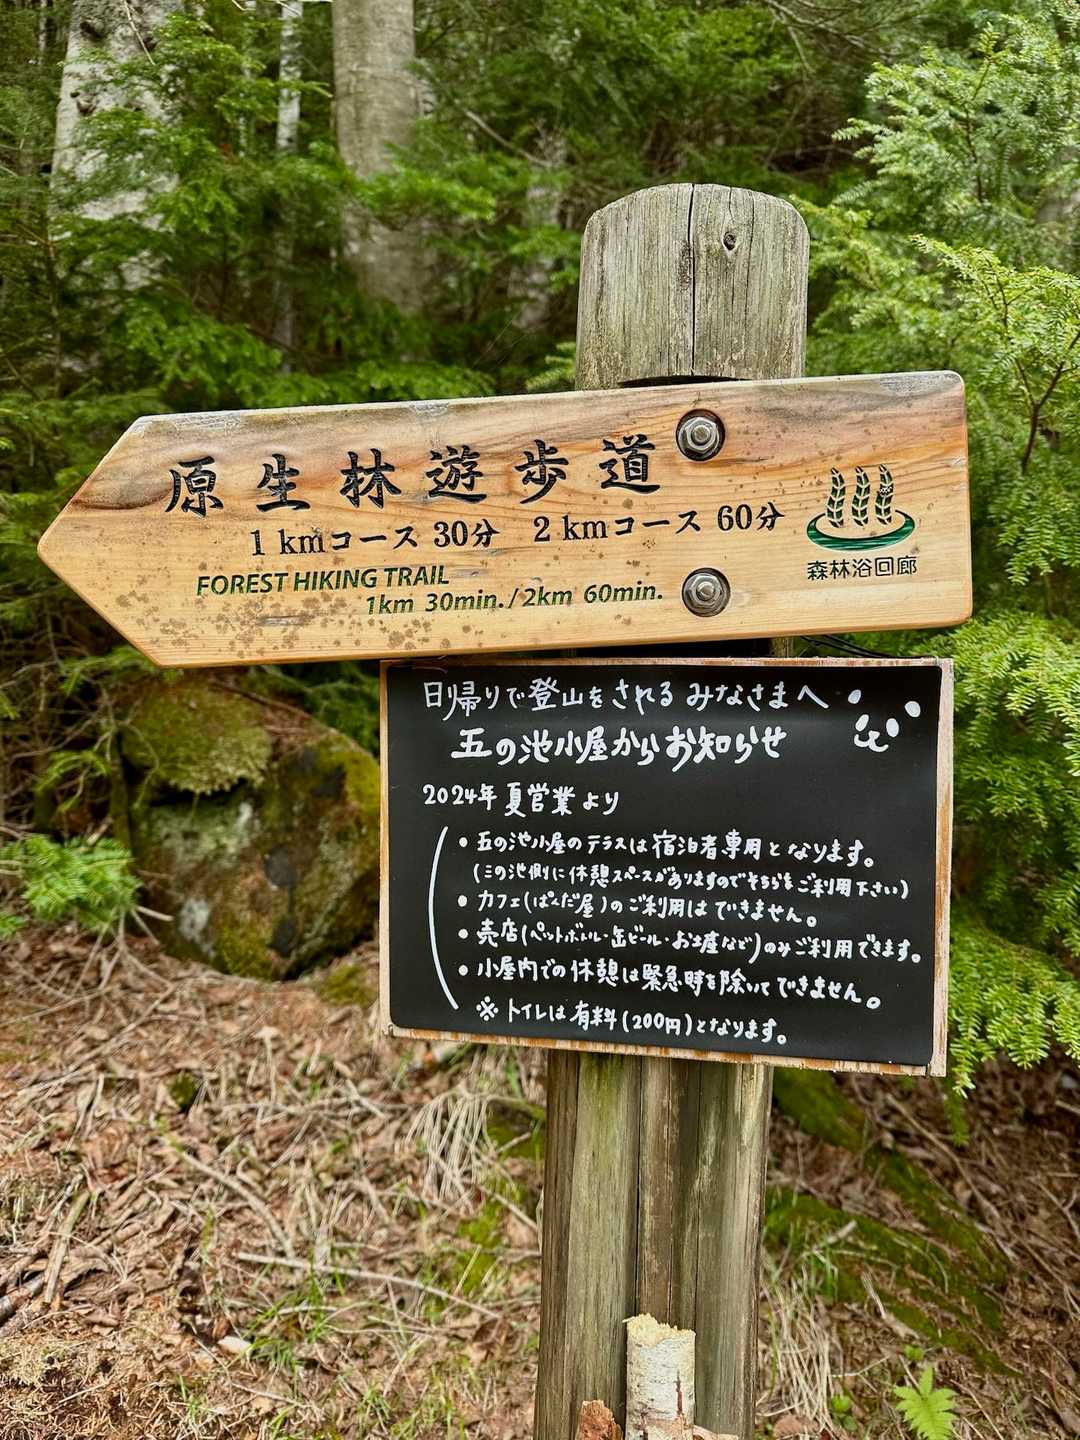 原生林遊歩道
1 kmコース 30分 2 kmコース 60分
FOREST HIKING TRAIL
1km 30min./2km 60min.
森林浴回廊
日帰りで登山をされるみなさまへ
五の池小屋からお知らせ
2024年夏営業より
・五の池小屋のテラスは宿泊者専用となります。
(三の池側に休憩スペースがありますのでそちらをご利用下さい)
・カフェ(ぱんだ屋)のご利用はできません。
・売店(ペットボトル・缶ビール・お土産など)のみご利用できます。
・小屋内での休憩は緊急時を除いてできません。
※トイレは有料(200円)となります。